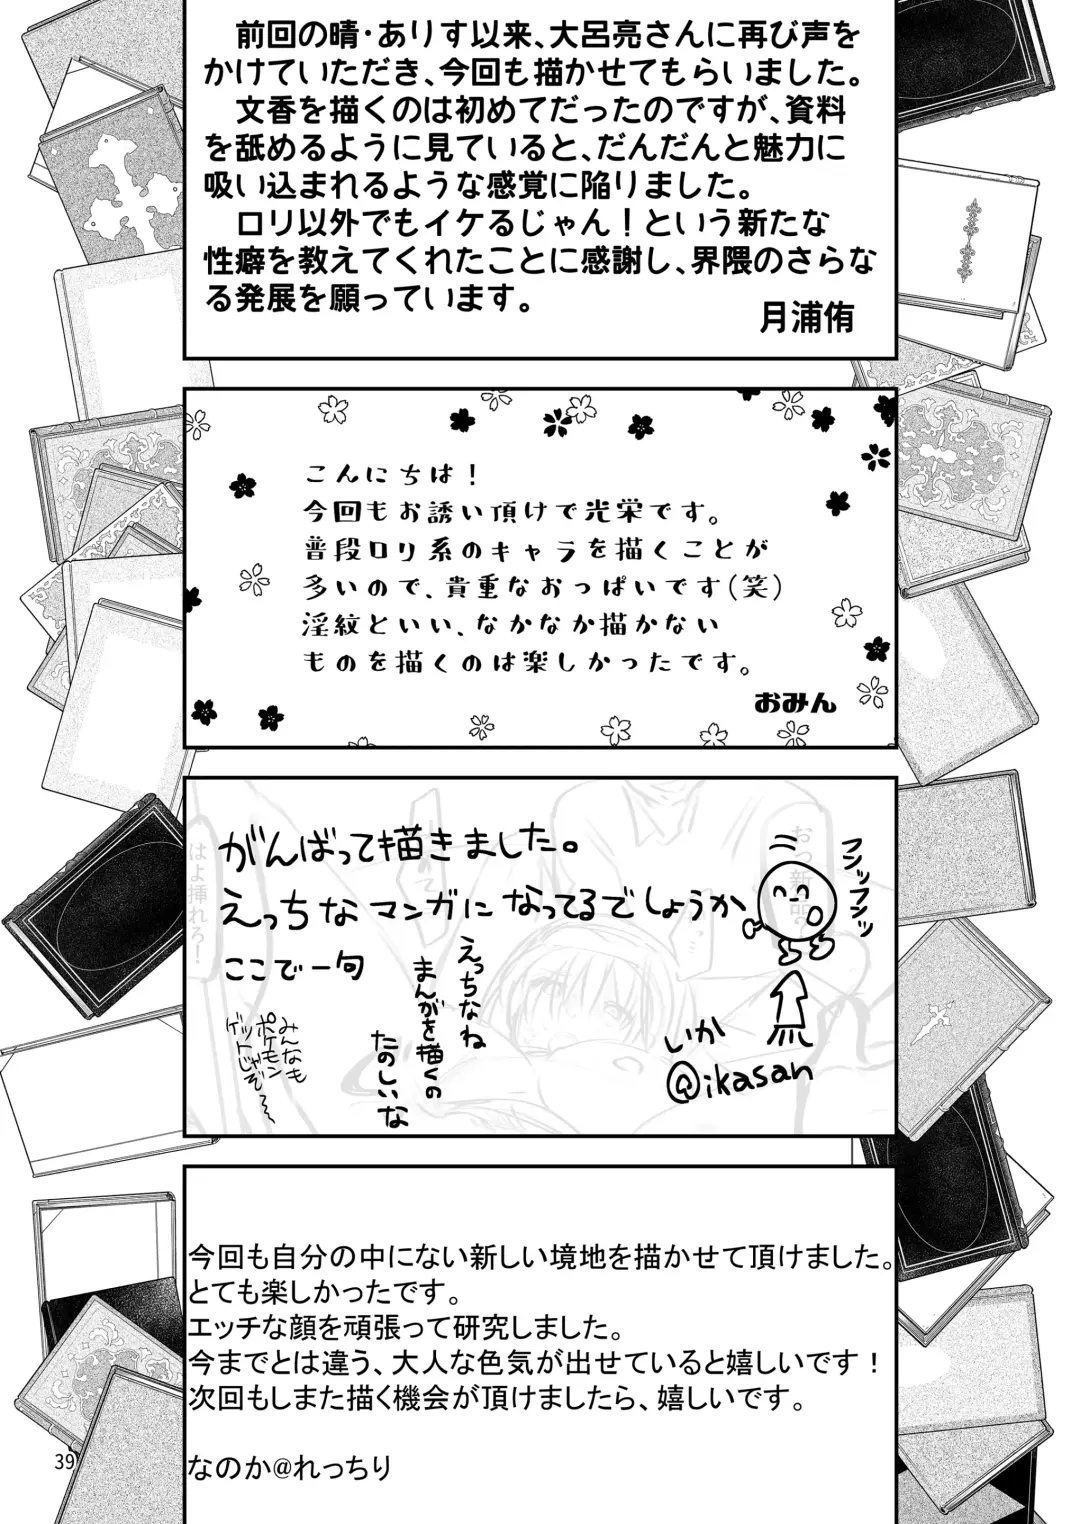 前回の晴・ありす以来、大呂亮さんに再び声を
かけていただき、今回も描かせてもらいました。
文香を描くのは初めてだったのですが、資料
を舐めるように見ていると、だんだんと魅力に
吸い込まれるような感覚に陥りました。
ロリ以外でもイケるじゃん！という新たな
性癖を教えてくれたことに感謝し、界隈のさらな
る発展を願っています。
月浦侑
こんにちは！
今回もお誘い頂けて光栄です。
普段ロリ系のキャラを描くことが
多いので、貴重なおっぱいです(笑)
淫紋といい、なかなか描かない
ものを描くのは楽しかったです。
おみん
がんばって描きました。
えっちなマンガになってるでしょうか
ここで一句
えっちなね
まんがを描くの
たのしいな
みんなも
ポケモン
ゲットじゃぞ〜
フンッフンッ
いか
@ikasan
おっ新品？
はよ挿れろ！
今回も自分の中にない新しい境地を描かせて頂けました。
とても楽しかったです。
エッチな顔を頑張って研究しました。
今までとは違う、大人な色気が出せていると嬉しいです！
次回もしまた描く機会が頂けましたら、嬉しいです。
なのか@れっちり
39